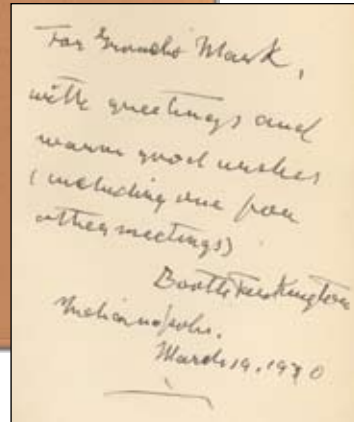 For Mark,
with greetings and
warm good wishes
(including one for
other meetings)
Booth Tarkington
Indianapolis.
March 19, 1930